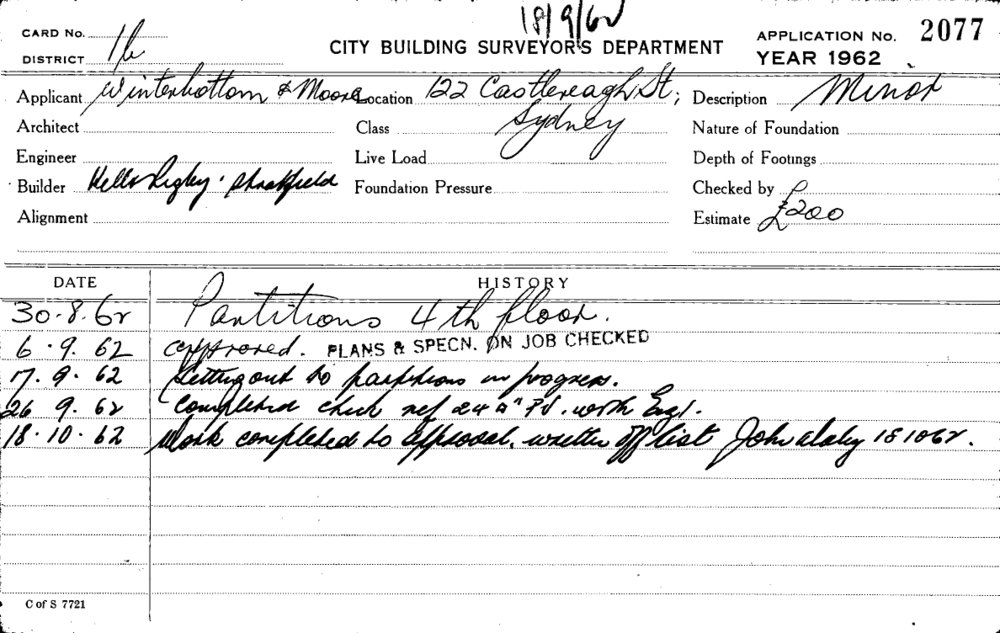 18/9/62
CARD No.
CITY BUILDING SURVEYOR'S DEPARTMENT
APPLICATION No. 2077
DISTRICT 1b
YEAR 1962
Applicant Winterbottom & Moore Location 122 Castlereagh St, Sydney Description Minor
Architect Class Nature of Foundation
Engineer Live Load Depth of Footings
Builder Kells Rigby Foundation Pressure Checked by
Alignment Estimate £200
DATE HISTORY
30.8.62 Partitions 4th floor.
6.9.62 approved. PLANS & SPECN. ON JOB CHECKED
17.9.62 Setting out to partitions in progress.
26 9.62 Completed check ref with
18.10.62 Work completed to approval. written off list John 18 10 62.
C of S 7721